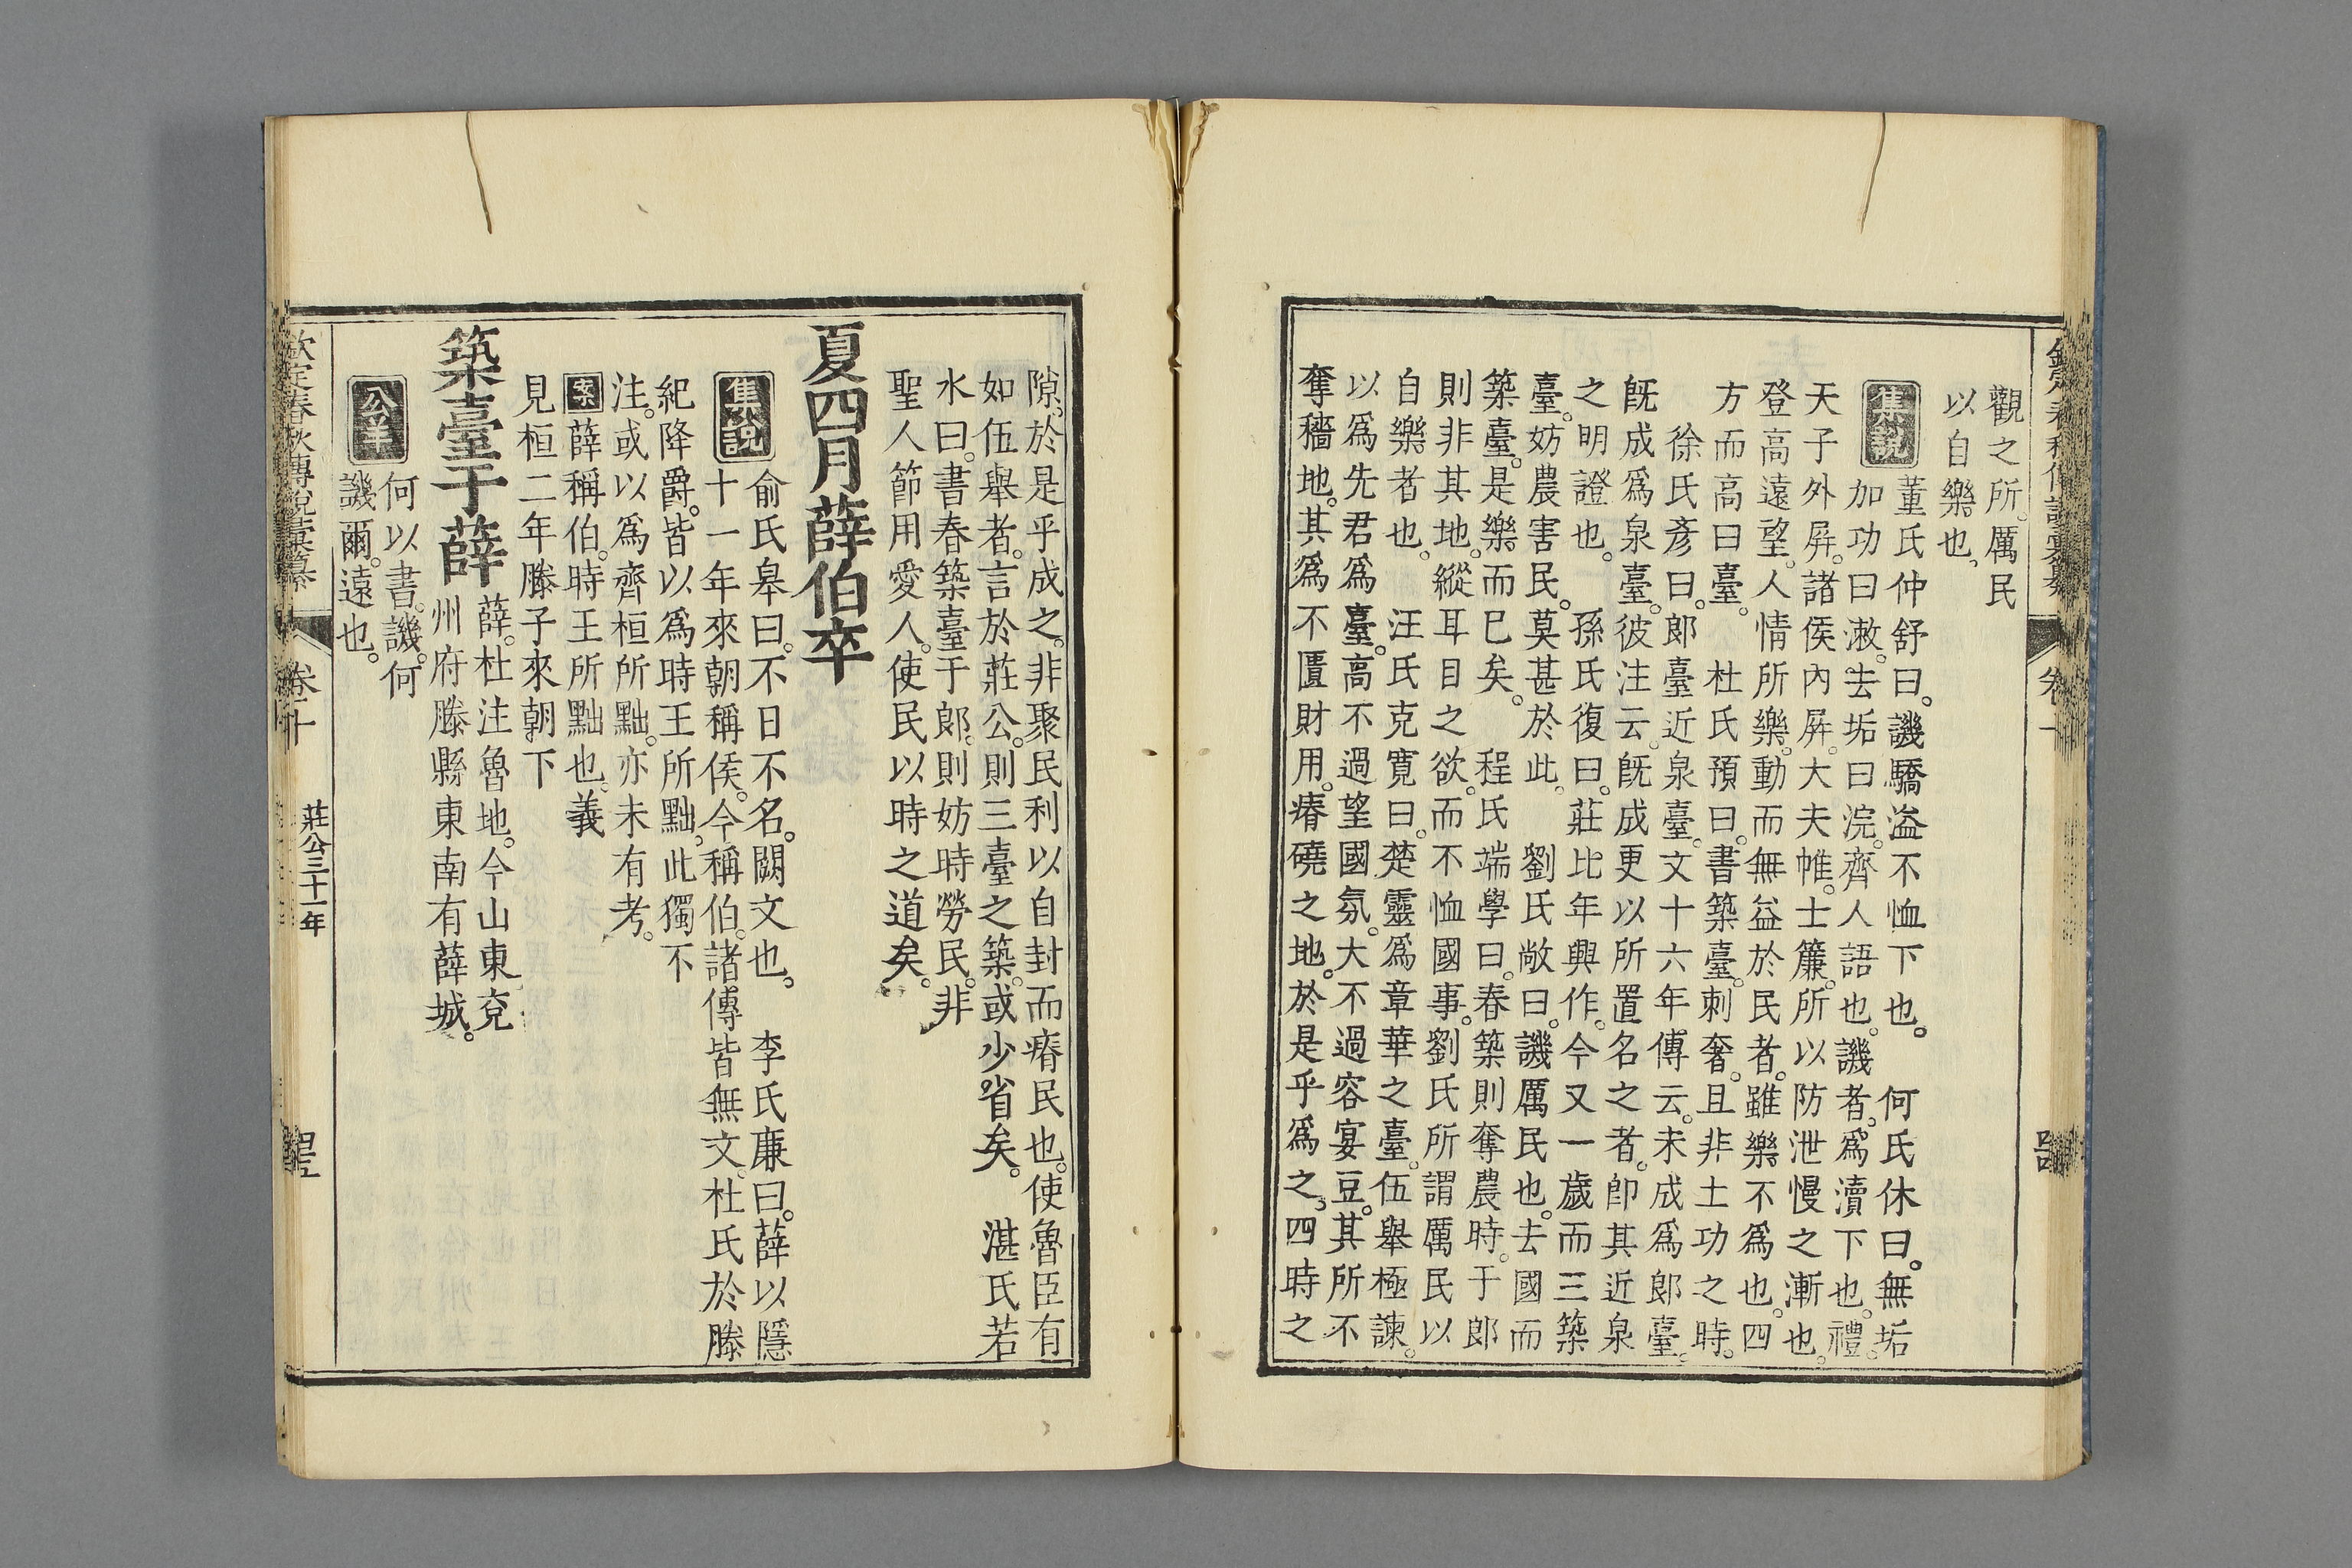 觀之所厲民
以自樂也
集說
董氏仲舒曰譏驕溢不恤下也。　何氏休曰無垢
加功曰漱去垢曰浣齊人語也譏者爲瀆下也禮
天子外屏諸侯內屏大夫帷士簾所以防泄慢之漸也
登高遠望人情所樂動而無益於民者雖樂不爲也四
方而高曰臺　杜氏預曰書築臺刺奢且非土功之時
徐氏彥曰郞臺近泉臺文十六年傳云未成爲郞臺
旣成爲泉臺彼注云旣成更以所置名之者卽其近泉
之明證也　孫氏復曰莊比年興作今又一歲而三築
臺妨農害民莫甚於此　劉氏敞曰譏厲民也去國而
築臺是樂而已矣　程氏端學曰春築則奪農時于郞
則非其地縱耳目之欲而不恤國事劉氏所謂厲民以
自樂者也　汪氏克寬曰楚靈爲章華之臺伍舉極諫
以爲先君爲臺高不過望國氛大不過容宴豆其所不
奪穡地其爲不匱財用瘠磽之地於是乎爲之四時之
隙於是乎成之非聚民利以自封而瘠民也使魯臣有
如伍舉者言於莊公則三臺之築或少省矣　湛氏若
水曰書春築臺于郞則妨時勞民非
聖人節用愛人使民以時之道矣
夏四月薛伯卒
集說
俞氏皋曰不日不名闕文也　李氏廉曰薛以隱
十一年來朝稱侯今稱伯諸傳皆無文杜氏於滕
紀降爵皆以爲時王所黜此獨不
注或以爲齊桓所黜亦未有考
案薛稱伯時王所黜也義
見桓二年滕子來朝下
築臺于薛
薛杜注魯地今山東兗
州府滕縣東南有薛城
公羊
何以書譏何
譏爾遠也
欽定春秋傳說彙纂
卷十
莊公三十一年